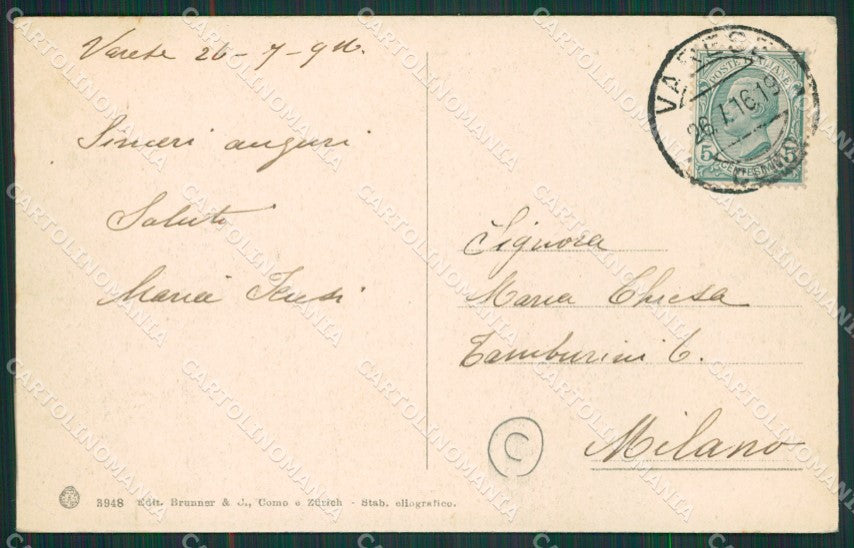 Varese 26-7-916.
Sinceri auguri
Saluti
Maria
Signora
Maria Chiesa
Tamburini 6.
Milano
C
VARESE
26.7.16.19
COMO
POSTE ITALIANE
5 CENTESIMI 5
3948 Edit. Brunner & C., Como e Zürich - Stab. eliografico.
CARTOLINOMANIA